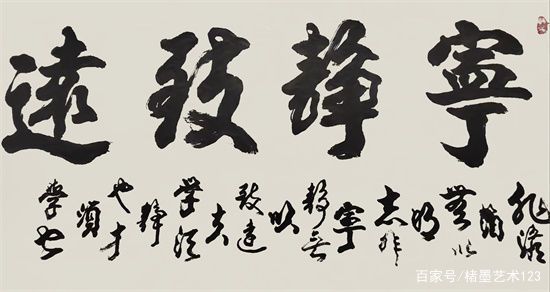 寧靜致遠
非澹薄無以明志非寧靜無以致遠夫學須靜也才須學也
百家号/楮墨艺术123